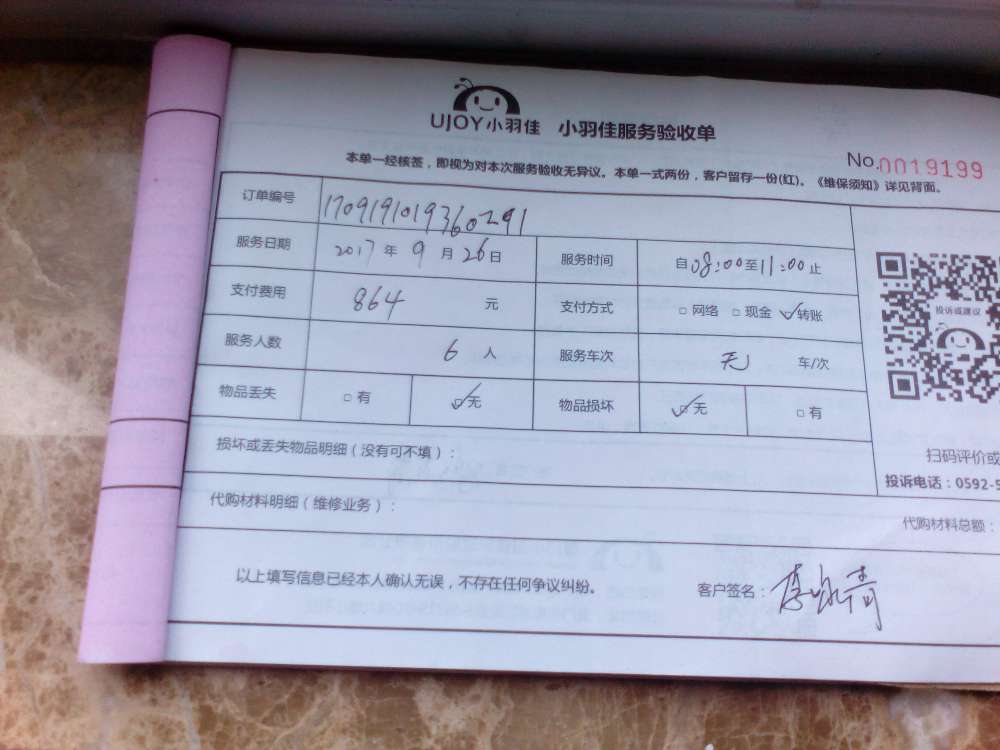 UJOY小羽佳 小羽佳服务验收单
No.0019199
本单一经核签，即视为对本次服务验收无异议。本单一式两份，客户留存一份(红)。《维保须知》详见背面。
订单编号 1709191019360291
服务日期 2017年9月26日 服务时间 自08:00至11:00止
支付费用 864 元 支付方式 □网络 □现金 ☑转账
投诉或建议
服务人数 6 人 服务车次 无 车/次
物品丢失 □有 ☑无 物品损坏 ☑无 □有
损坏或丢失物品明细（没有可不填）：
扫码评价或
投诉电话：0592-5
代购材料明细（维修业务）：
代购材料总额：
以上填写信息已经本人确认无误，不存在任何争议纠纷。 客户签名：